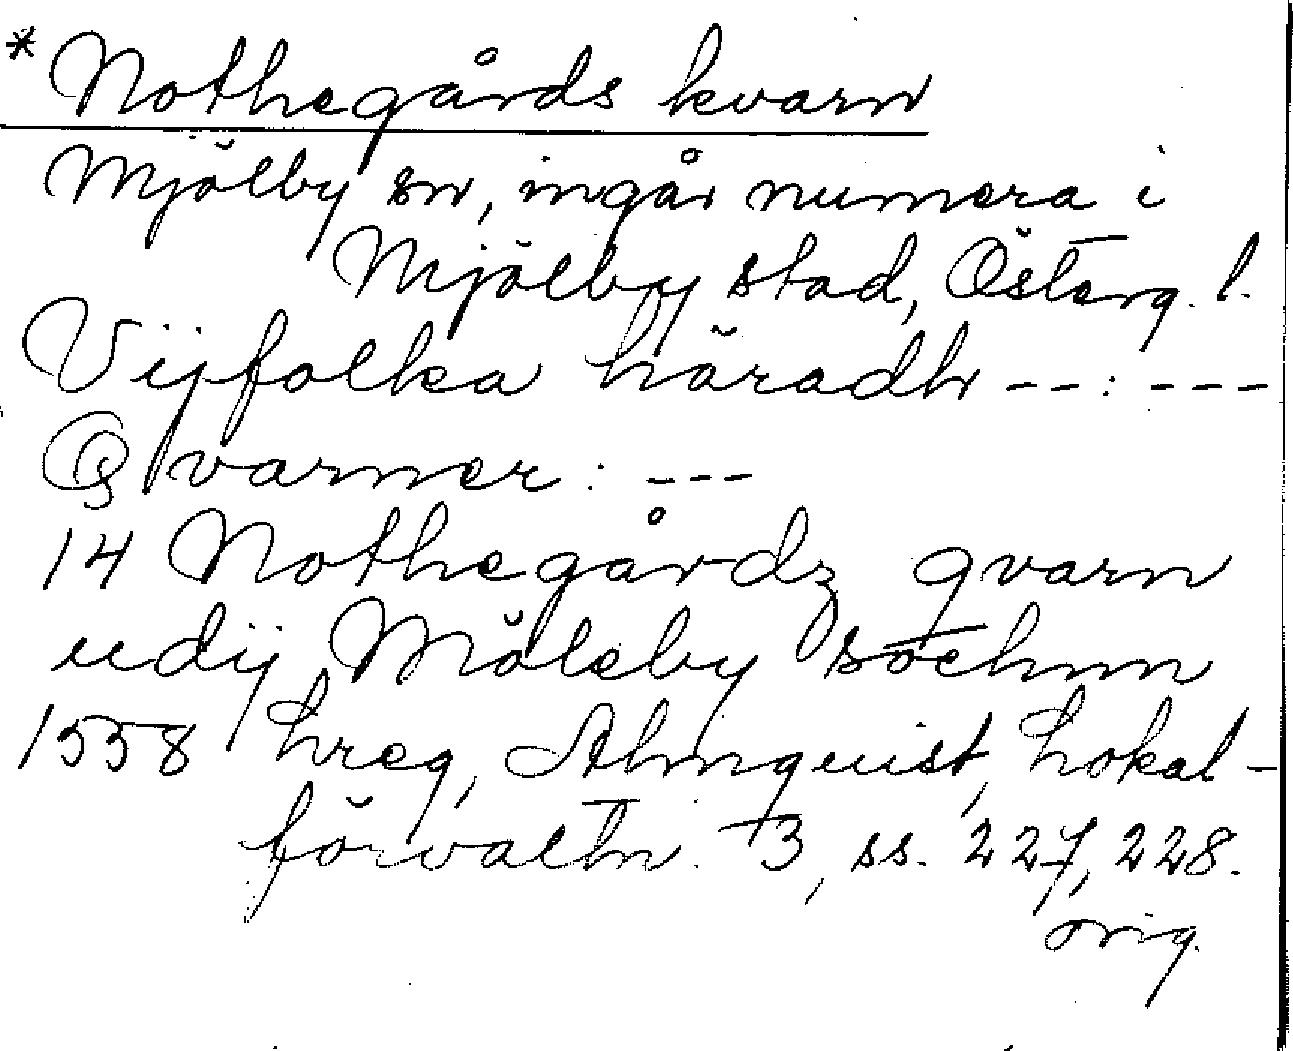 *Nothegårds kvarn
Mjölby sn, ingår numera i
Mjölby stad, Österg. l.
Vijfolka häradh --:---
Qvarner: ---
14 Nothegårdz qvarn
udij Möleby sochnn
1558 hreg, Almquist, Lokal-
förvaltn. 3, ss. 227, 228.
orig.